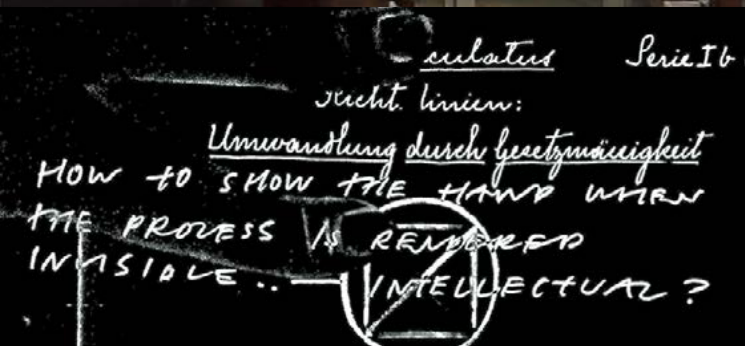 culatus Serie I b
Richt. linien:
Umwandlung durch Gesetzmässigkeit
HOW TO SHOW THE HAND WHEN
THE PROCESS IS RENDERED
INVISIBLE .. — INTELLECTUAL?